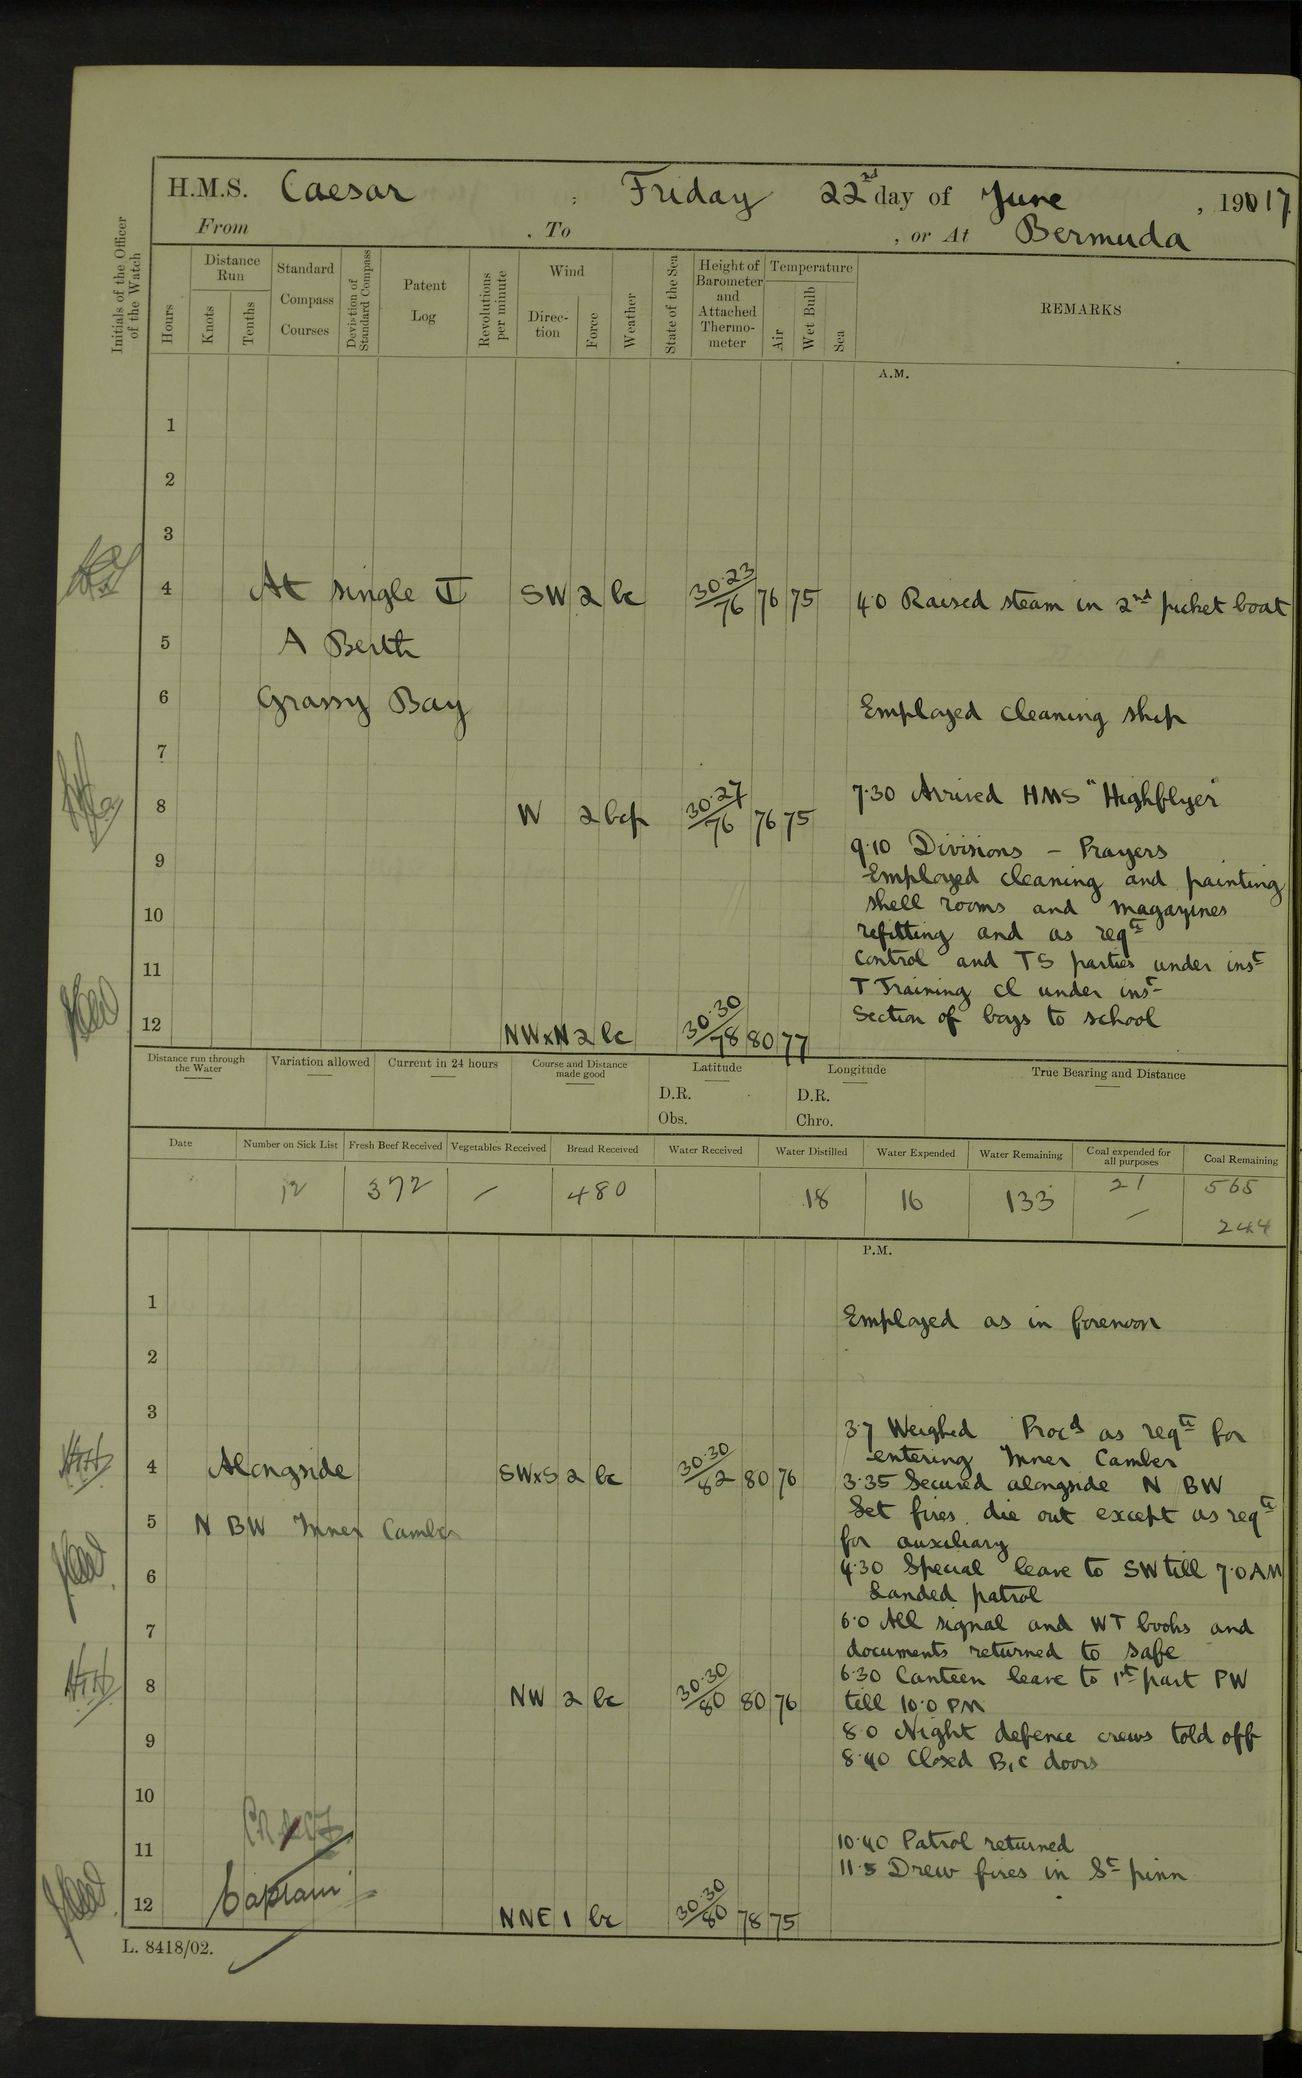 H.M.S. Caesar , Friday 22nd day of June , 19017
From , To , or At Bermuda
Initials of the Officer of the Watch
Hours
Distance Run
Knots
Tenths
Standard Compass Courses
Deviation of Standard Compass
Patent Log
Revolutions per minute
Wind
Direction
Force
Weather
State of the Sea
Height of Barometer and Attached Thermometer
Temperature
Air
Wet Bulb
Sea
REMARKS
A.M.
1
2
3
4 At single ⚓ SW 2 bc 30·23/76 76 75 4·0 Raised steam in 2nd picket boat
5 A Berth
6 Grassy Bay Employed cleaning ship
7
7·30 Arrived HMS "Highflyer"
8 W 2 bcp 30·27/76 76 75
9·10 Divisions – Prayers
9 Employed cleaning and painting
shell rooms and magazines
10 refitting and as reqte
control and TS parties under inst
11 T Training cl under inst
Section of boys to school
12 NWxN 2 bc 30·30/78 80 77
Distance run through the Water
Variation allowed
Current in 24 hours
Course and Distance made good
Latitude
D.R.
Obs.
Longitude
D.R.
Chro.
True Bearing and Distance
Date Number on Sick List Fresh Beef Received Vegetables Received Bread Received Water Received Water Distilled Water Expended Water Remaining Coal expended for all purposes Coal Remaining
12 372 – 480 18 16 133 21 565
– 244
P.M.
1 Employed as in forenoon
2
3
3·7 Weighed Procd as reqte for
entering Inner Camber
4 Alongside SWxS 2 bc 30·30/82 80 76 3·35 Secured alongside N BW
Let fires die out except as reqte
5 N BW Inner Camber for auxiliary
4·30 Special leave to SW till 7·0 AM
6 Landed patrol
6·0 All signal and WT books and
7 documents returned to safe
6·30 Canteen leave to 1st part PW
8 NW 2 bc 30·30/80 80 76 till 10·0 PM
8·0 Night defence crews told off
9 8·40 Closed B,C doors
10
10·40 Patrol returned
11 11·5 Drew fires in St pinn
Captain
12 NNE 1 bc 30·30/80 78 75
L. 8418/02.